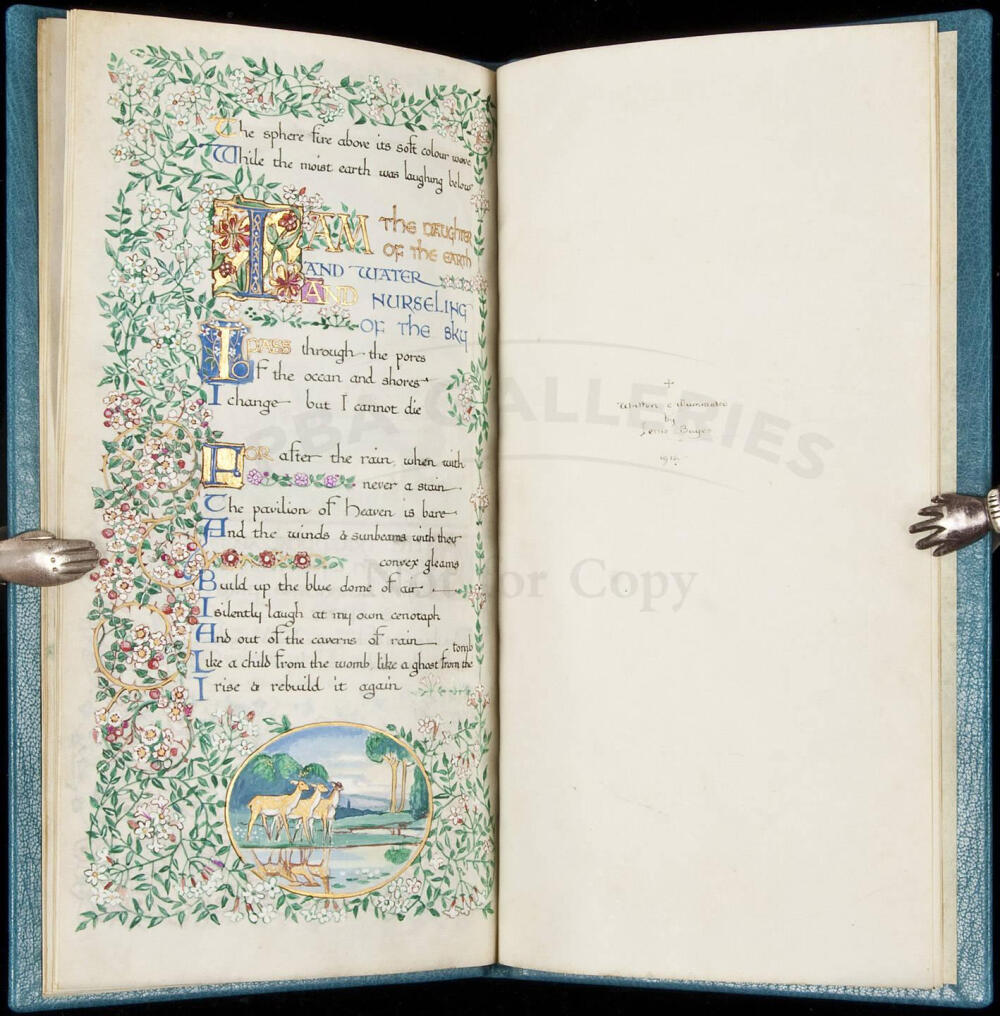 The sphere fire above its soft colour wove
While the moist earth was laughing below
I AM the DAUGHTER
OF the EARTH
AND WATER
AND NURSELING
OF the SKY
I PASS through the pores
Of the ocean and shores
I change but I cannot die
FOR after the rain, when with
never a stain
The pavilion of Heaven is bare
And the winds & sunbeams with their
convex gleams
Build up the blue dome of air
I silently laugh at my own cenotaph
And out of the caverns of rain
tomb
Like a child from the womb, like a ghost from the
I rise & rebuild it again
Written & illuminated
by
Bayes
PBA GALLERIES
Not for Copy